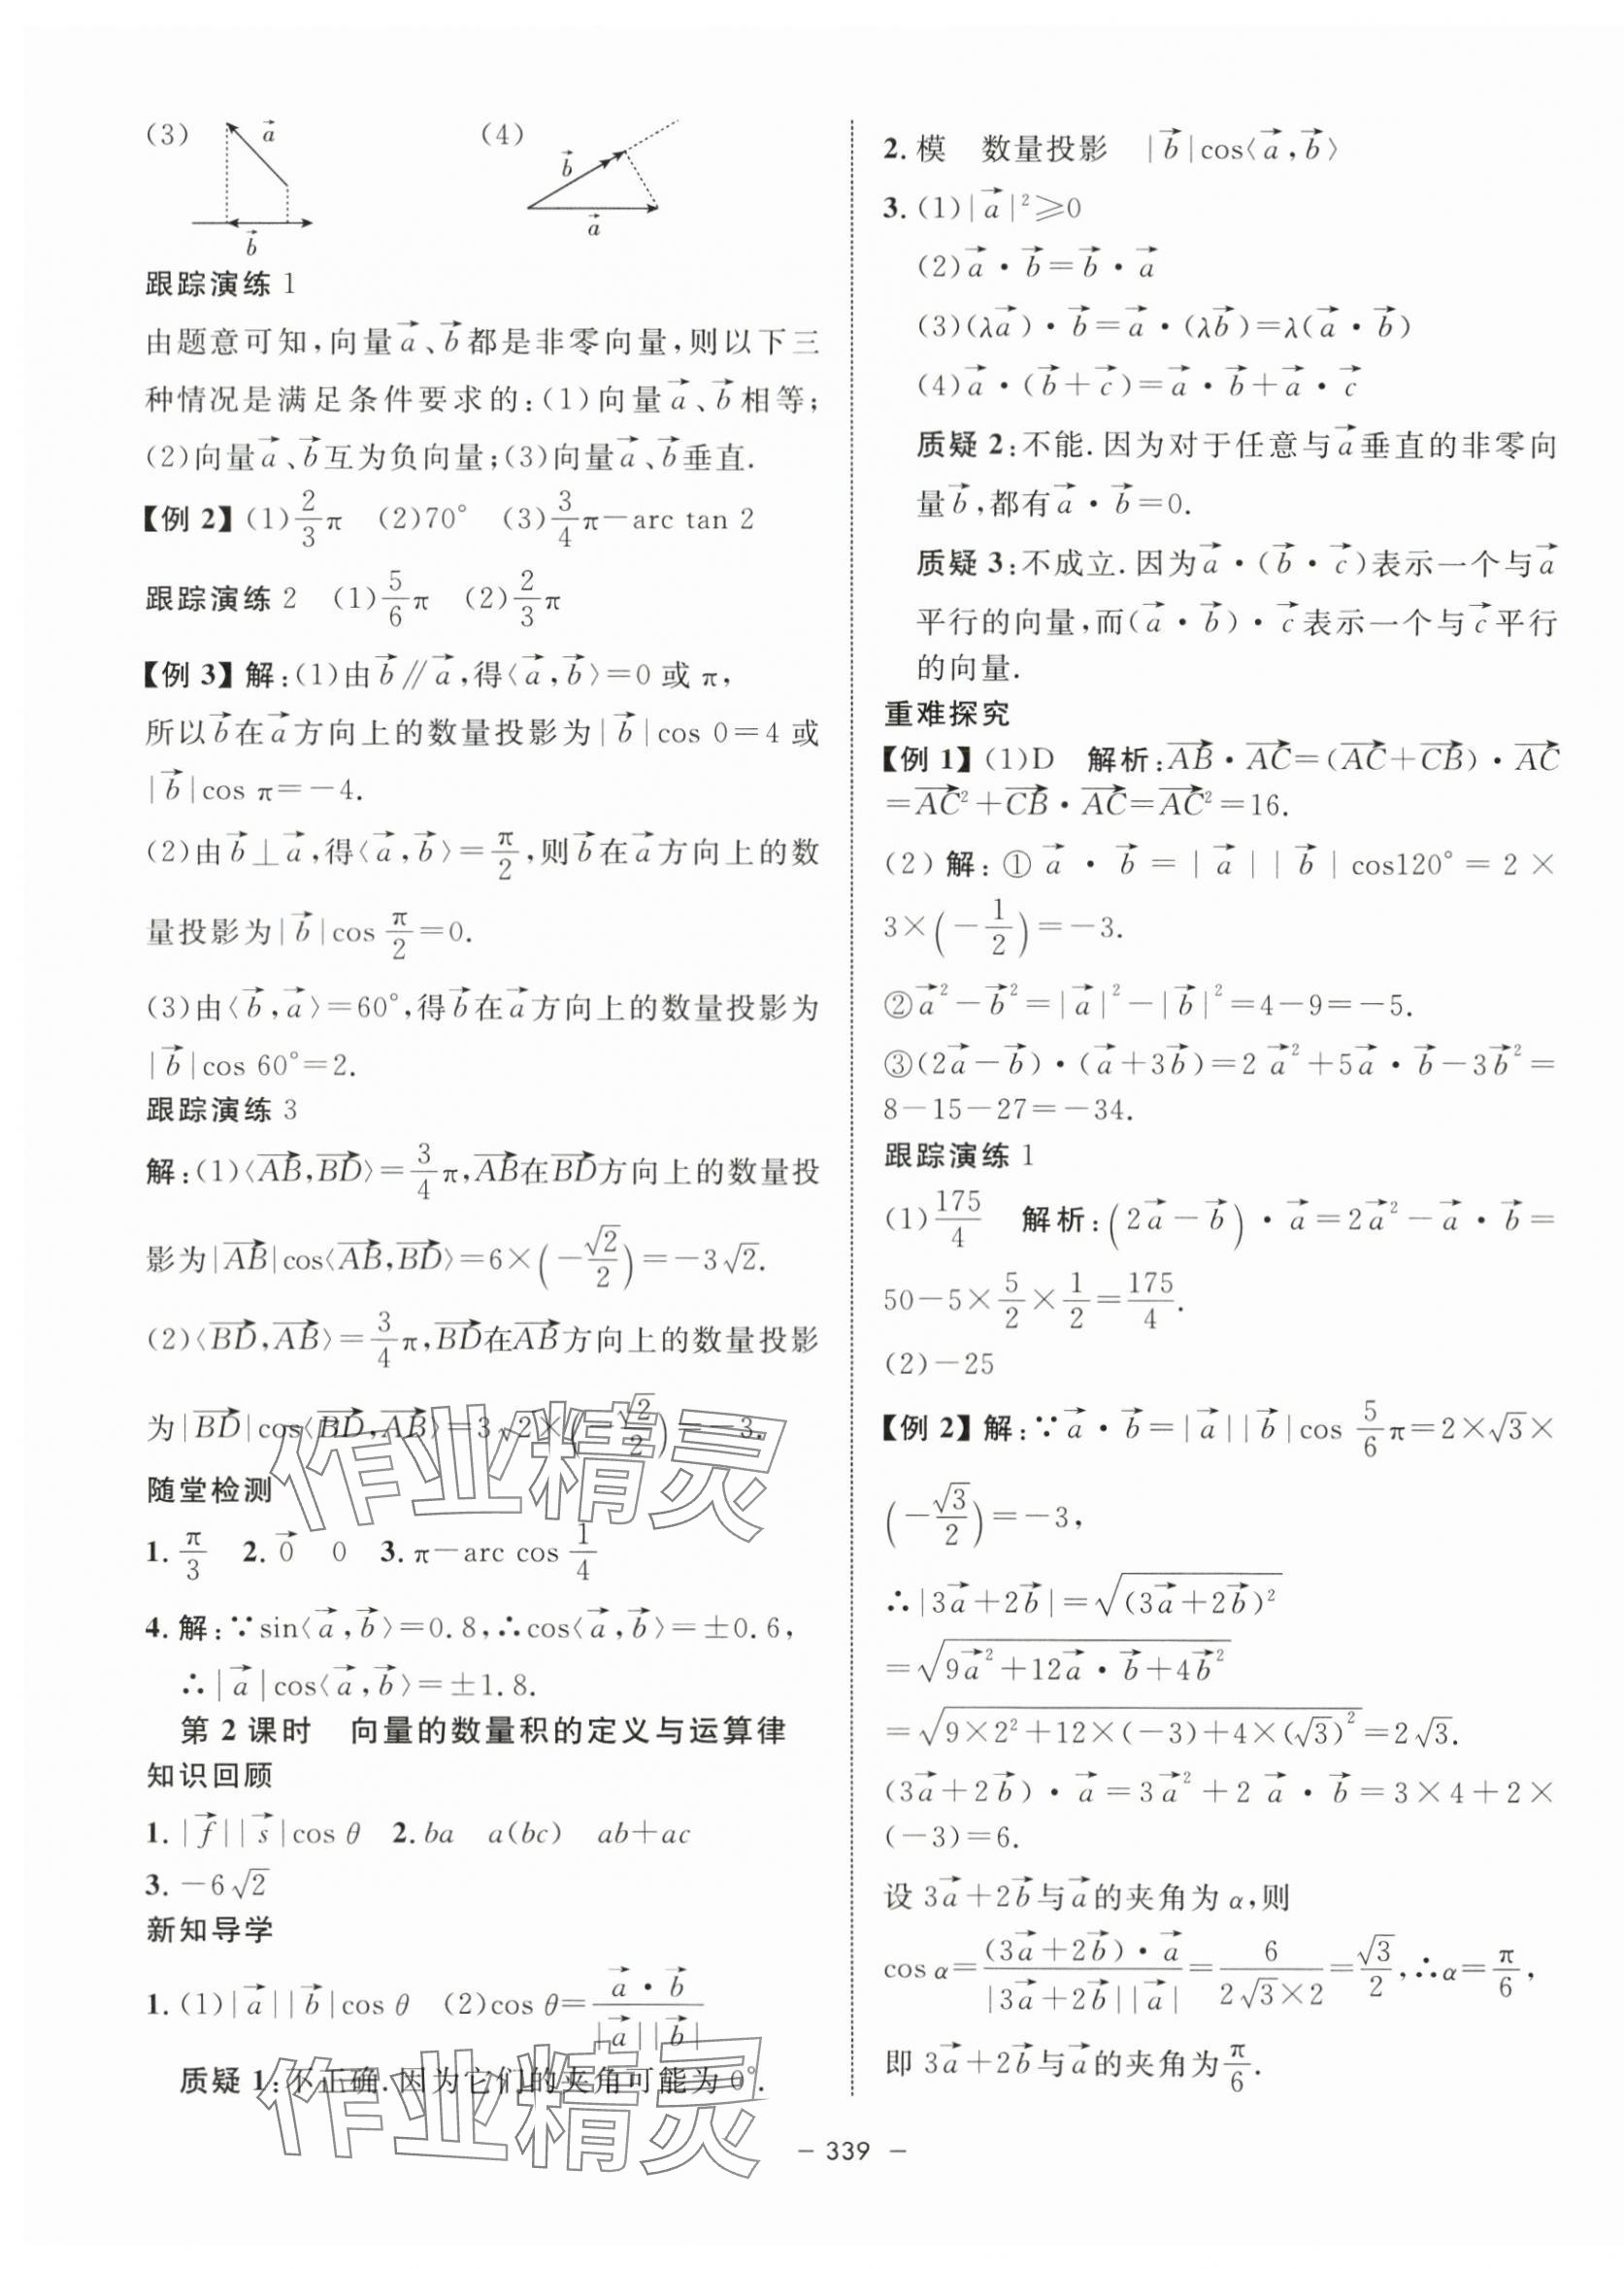 (3) $\vec{a}$ $\vec{b}$ (4) $\vec{b}$ $\vec{a}$
跟踪演练 1
由题意可知,向量$\vec{a}$、$\vec{b}$都是非零向量,则以下三
种情况是满足条件要求的:(1)向量$\vec{a}$、$\vec{b}$相等;
(2)向量$\vec{a}$、$\vec{b}$互为负向量;(3)向量$\vec{a}$、$\vec{b}$垂直.
【例 2】(1)$\frac{2}{3}$π (2)70° (3)$\frac{3}{4}$π−arc tan 2
跟踪演练 2 (1)$\frac{5}{6}$π (2)$\frac{2}{3}$π
【例 3】解:(1)由$\vec{b}$∥$\vec{a}$,得⟨$\vec{a}$,$\vec{b}$⟩=0 或 π,
所以$\vec{b}$在$\vec{a}$方向上的数量投影为|$\vec{b}$|cos 0=4 或
|$\vec{b}$|cos π=−4.
(2)由$\vec{b}$⊥$\vec{a}$,得⟨$\vec{a}$,$\vec{b}$⟩=$\frac{π}{2}$,则$\vec{b}$在$\vec{a}$方向上的数
量投影为|$\vec{b}$|cos $\frac{π}{2}$=0.
(3)由⟨$\vec{b}$,$\vec{a}$⟩=60°,得$\vec{b}$在$\vec{a}$方向上的数量投影为
|$\vec{b}$|cos 60°=2.
跟踪演练 3
解:(1)⟨$\overrightarrow{AB}$,$\overrightarrow{BD}$⟩=$\frac{3}{4}$π,$\overrightarrow{AB}$在$\overrightarrow{BD}$方向上的数量投
影为|$\overrightarrow{AB}$|cos⟨$\overrightarrow{AB}$,$\overrightarrow{BD}$⟩=6×$\left(-\frac{\sqrt{2}}{2}\right)$=−3$\sqrt{2}$.
(2)⟨$\overrightarrow{BD}$,$\overrightarrow{AB}$⟩=$\frac{3}{4}$π,$\overrightarrow{BD}$在$\overrightarrow{AB}$方向上的数量投影
为|$\overrightarrow{BD}$|cos⟨$\overrightarrow{BD}$,$\overrightarrow{AB}$⟩=3$\sqrt{2}$×$\left(-\frac{\sqrt{2}}{2}\right)$=−3.
作业精灵
随堂检测
1. $\frac{π}{3}$ 2. $\vec{0}$ 0 3. π−arc cos $\frac{1}{4}$
4. 解:∵sin⟨$\vec{a}$,$\vec{b}$⟩=0.8,∴cos⟨$\vec{a}$,$\vec{b}$⟩=±0.6,
∴|$\vec{a}$|cos⟨$\vec{a}$,$\vec{b}$⟩=±1.8.
第 2 课时 向量的数量积的定义与运算律
知识回顾
1. |$\vec{f}$||$\vec{s}$|cos θ 2. ba a(bc) ab+ac
3. −6$\sqrt{2}$
新知导学
1. (1)|$\vec{a}$||$\vec{b}$|cos θ (2)cos θ=$\frac{\vec{a}·\vec{b}}{|\vec{a}||\vec{b}|}$
质疑 1:不正确.因为它们的夹角可能为 0°.
作业精灵
2. 模 数量投影 |$\vec{b}$|cos⟨$\vec{a}$,$\vec{b}$⟩
3. (1)|$\vec{a}$|²⩾0
(2)$\vec{a}$·$\vec{b}$=$\vec{b}$·$\vec{a}$
(3)(λ$\vec{a}$)·$\vec{b}$=$\vec{a}$·(λ$\vec{b}$)=λ($\vec{a}$·$\vec{b}$)
(4)$\vec{a}$·($\vec{b}$+$\vec{c}$)=$\vec{a}$·$\vec{b}$+$\vec{a}$·$\vec{c}$
质疑 2:不能.因为对于任意与$\vec{a}$垂直的非零向
量$\vec{b}$,都有$\vec{a}$·$\vec{b}$=0.
质疑 3:不成立.因为$\vec{a}$·($\vec{b}$·$\vec{c}$)表示一个与$\vec{a}$
平行的向量,而($\vec{a}$·$\vec{b}$)·$\vec{c}$表示一个与$\vec{c}$平行
的向量.
重难探究
【例 1】(1)D 解析:$\overrightarrow{AB}$·$\overrightarrow{AC}$=($\overrightarrow{AC}$+$\overrightarrow{CB}$)·$\overrightarrow{AC}$
=$\overrightarrow{AC}$²+$\overrightarrow{CB}$·$\overrightarrow{AC}$=$\overrightarrow{AC}$²=16.
(2)解:①$\vec{a}$·$\vec{b}$=|$\vec{a}$||$\vec{b}$|cos120°=2×
3×$\left(-\frac{1}{2}\right)$=−3.
②$\vec{a}$²−$\vec{b}$²=|$\vec{a}$|²−|$\vec{b}$|²=4−9=−5.
③(2$\vec{a}$−$\vec{b}$)·($\vec{a}$+3$\vec{b}$)=2$\vec{a}$²+5$\vec{a}$·$\vec{b}$−3$\vec{b}$²=
8−15−27=−34.
跟踪演练 1
(1)$\frac{175}{4}$ 解析:$\left(2\vec{a}-\vec{b}\right)$·$\vec{a}$=2$\vec{a}$²−$\vec{a}$·$\vec{b}$=
50−5×$\frac{5}{2}$×$\frac{1}{2}$=$\frac{175}{4}$.
(2)−25
【例 2】解:∵$\vec{a}$·$\vec{b}$=|$\vec{a}$||$\vec{b}$|cos $\frac{5}{6}$π=2×$\sqrt{3}$×
$\left(-\frac{\sqrt{3}}{2}\right)$=−3,
∴|3$\vec{a}$+2$\vec{b}$|=$\sqrt{(3\vec{a}+2\vec{b})^2}$
=$\sqrt{9\vec{a}^2+12\vec{a}·\vec{b}+4\vec{b}^2}$
=$\sqrt{9×2^2+12×(-3)+4×(\sqrt{3})^2}$=2$\sqrt{3}$.
(3$\vec{a}$+2$\vec{b}$)·$\vec{a}$=3$\vec{a}$²+2$\vec{a}$·$\vec{b}$=3×4+2×
(−3)=6.
设 3$\vec{a}$+2$\vec{b}$与$\vec{a}$的夹角为 α,则
cos α=$\frac{(3\vec{a}+2\vec{b})·\vec{a}}{|3\vec{a}+2\vec{b}||\vec{a}|}$=$\frac{6}{2\sqrt{3}×2}$=$\frac{\sqrt{3}}{2}$,∴α=$\frac{π}{6}$,
即 3$\vec{a}$+2$\vec{b}$与$\vec{a}$的夹角为$\frac{π}{6}$.
– 339 –